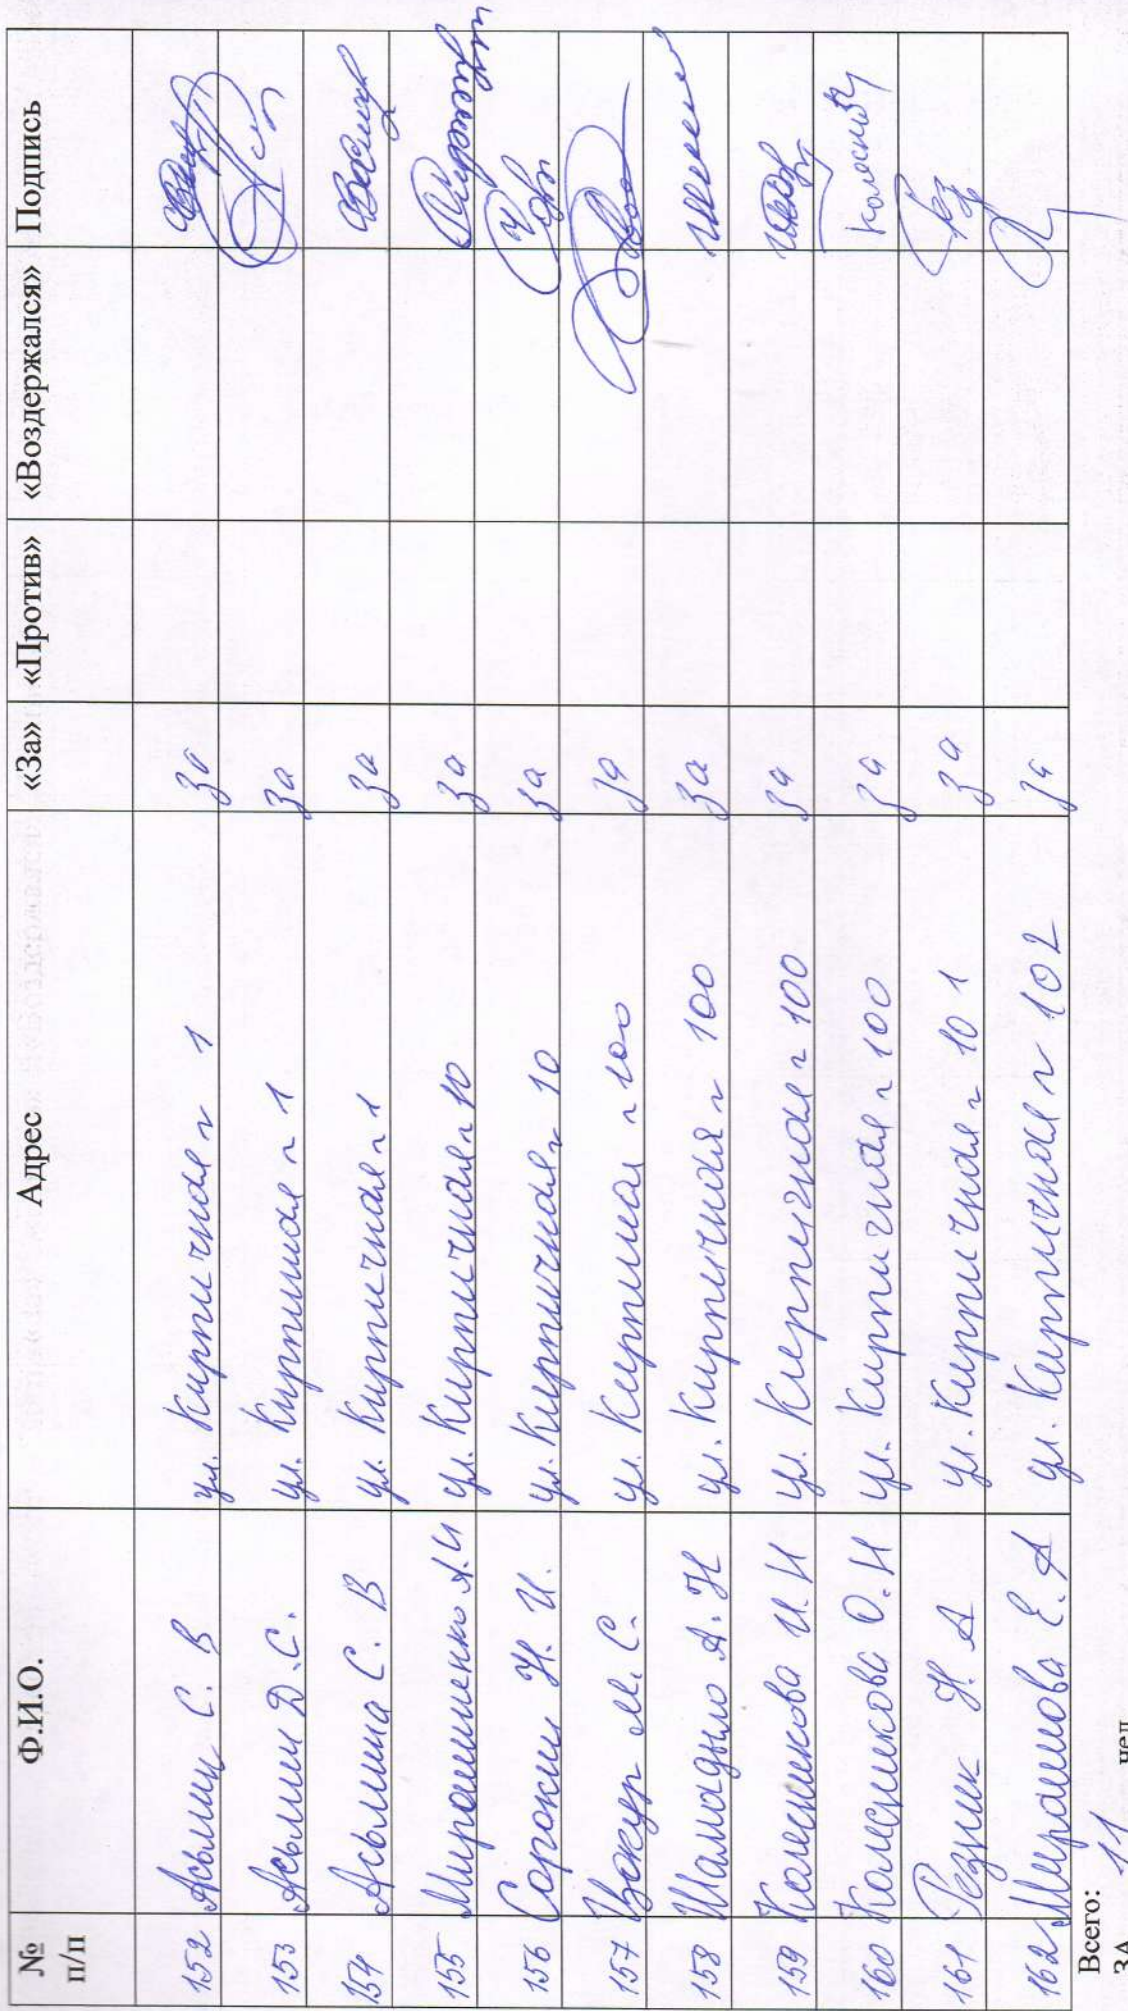 № п/п Ф.И.О. Адрес «За» «Против» «Воздержался» Подпись
152 Асылин С. В ул. Кирпичная 1 за
153 Асылин Д.С. ул. Кирпичная 1 за
154 Асылина С. В ул. Кирпичная 1 за
155 Мирошниченко А.И ул. Кирпичная 10 за
156 Сорокин Н. И. ул. Кирпичная 10 за
157 М. С. ул. Кирпичная 100 за
158 Шамадыло А. Н ул. Кирпичная 100 за
159 Колесникова И. И ул. Кирпичная 100 за
160 Колесникова О. Н ул. Кирпичная 100 за
161 Резник Н. А ул. Кирпичная 101 за
162 Е. А ул. Кирпичная 102 за
Всего:
ЗА 11 чел